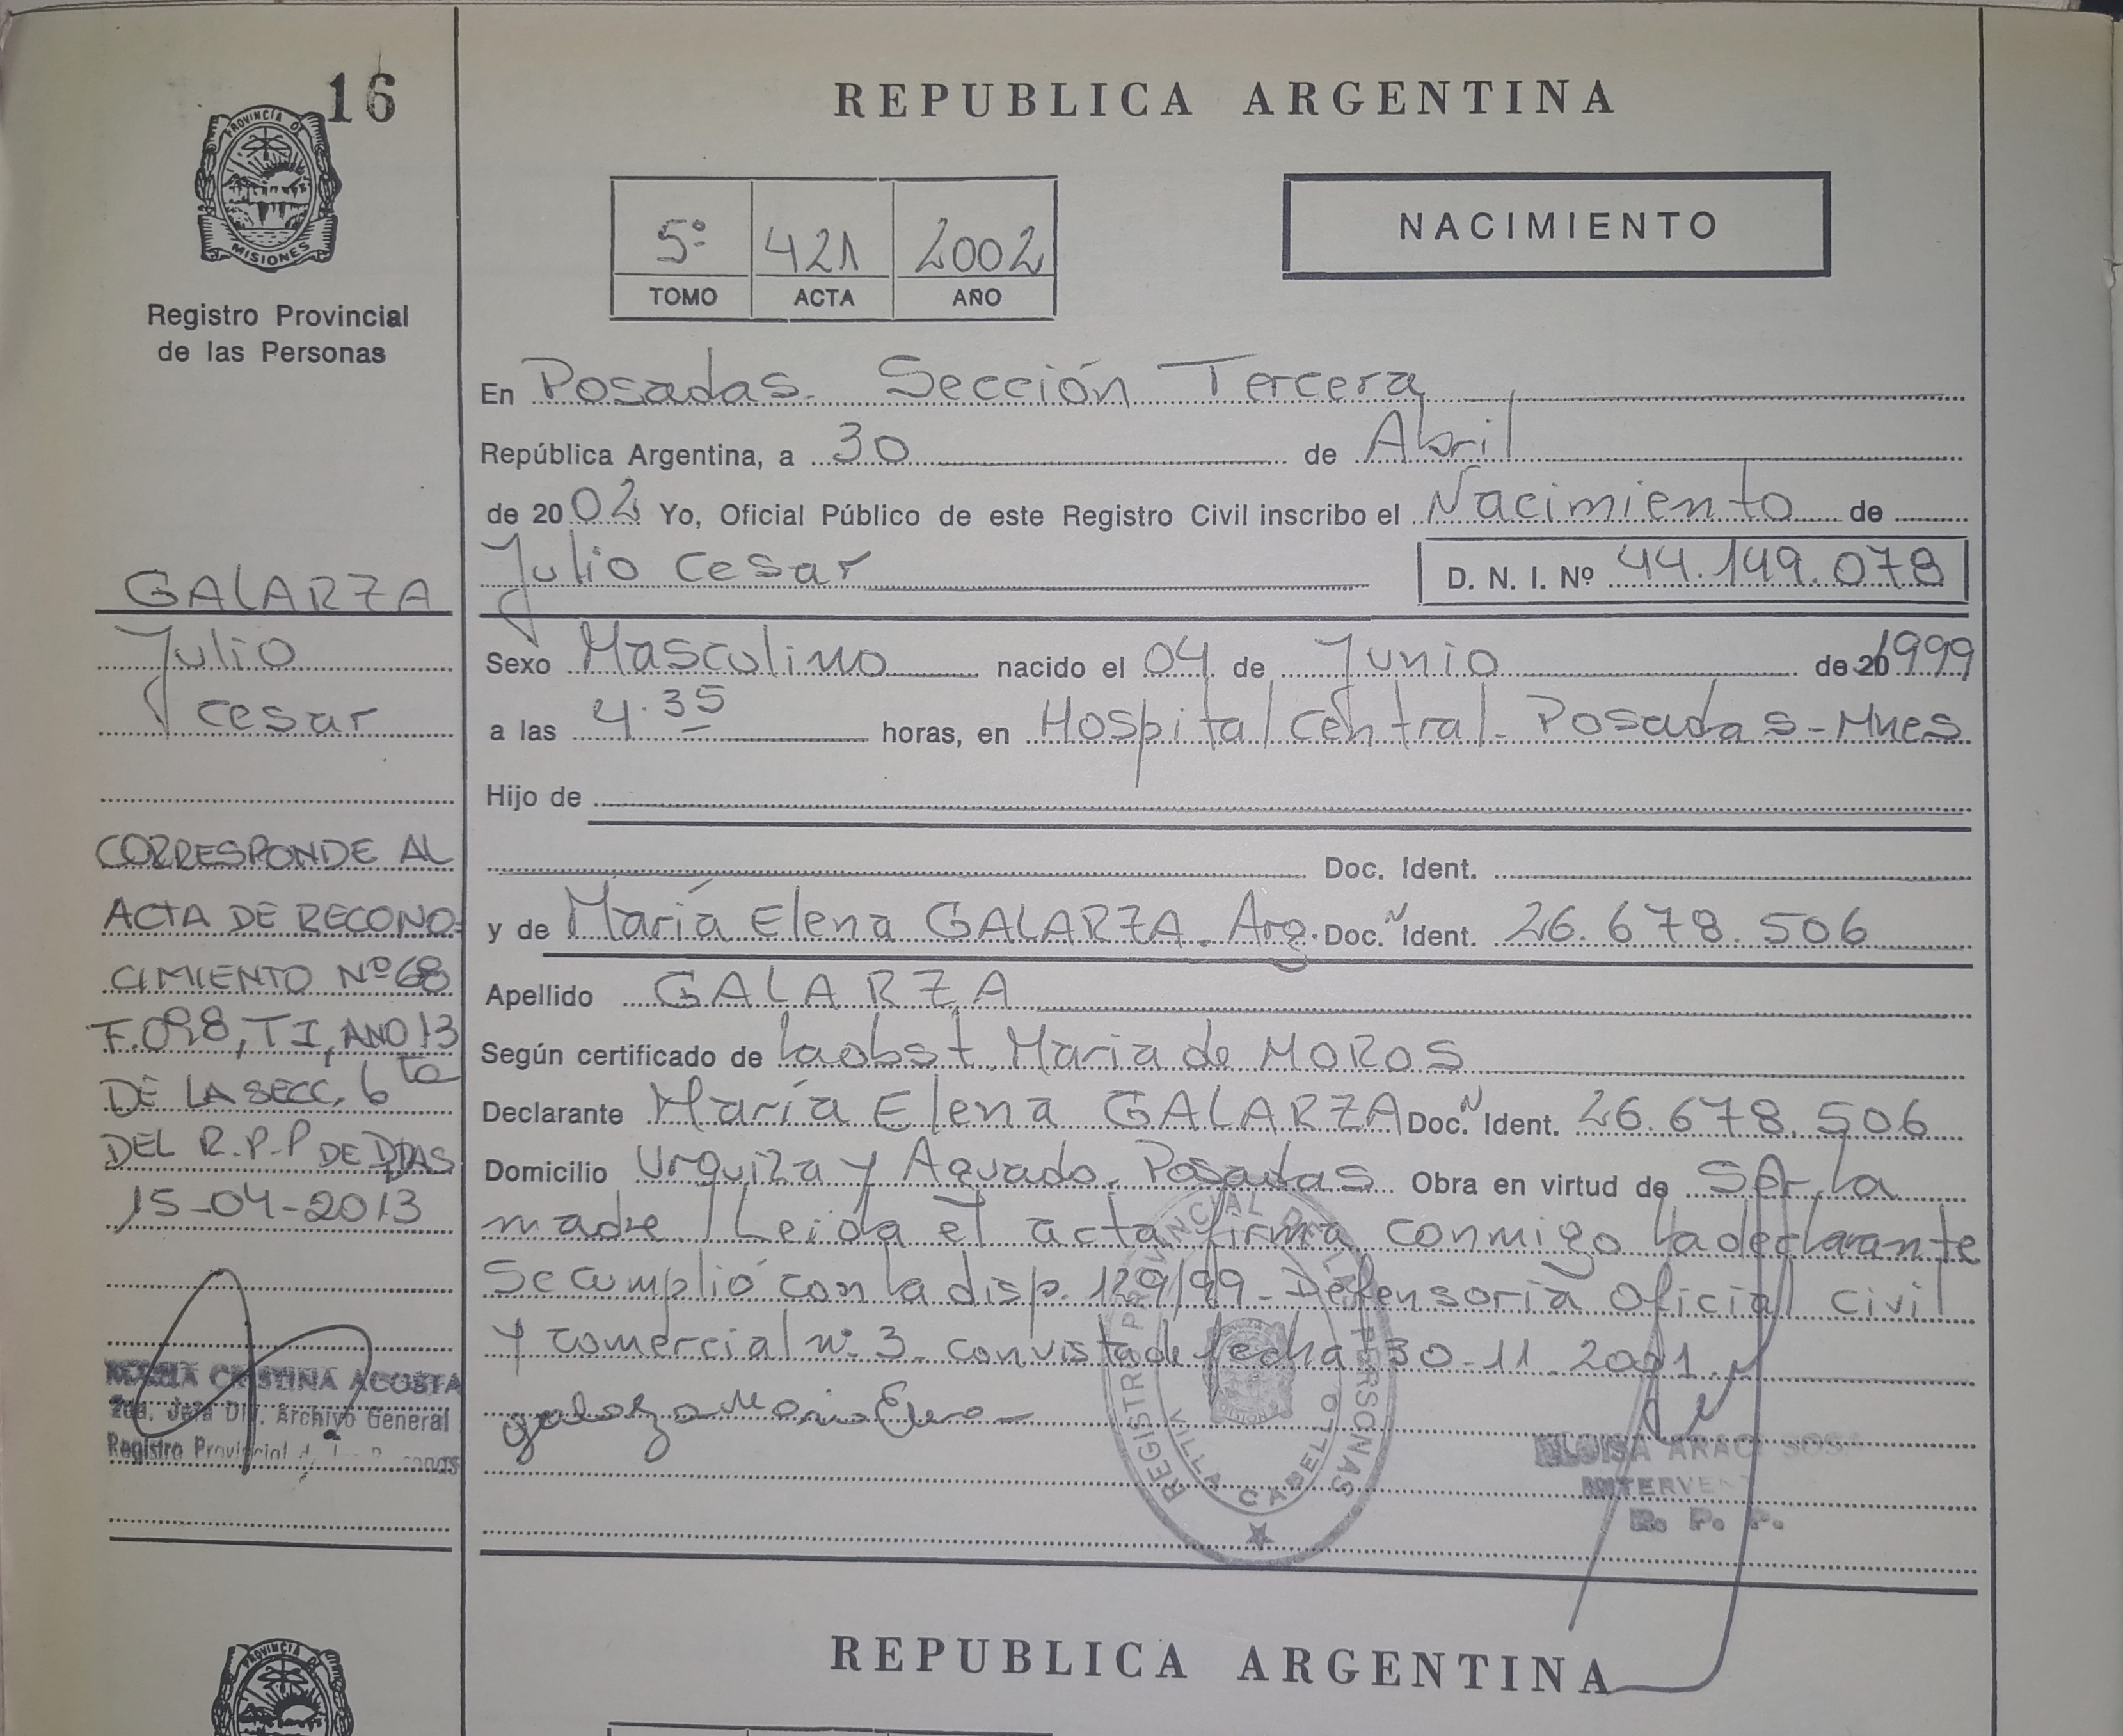 16
PROVINCIA DE
MISIONES
Registro Provincial
de las Personas
GALARZA
Julio
Cesar
CORRESPONDE AL
ACTA DE RECONO-
CIMIENTO Nº 68
F.098, T I, AÑO 13
DE LA SECC. 6ta
DEL R.P.P DE PDAS
15-04-2013
MARIA CRISTINA ACOSTA
2da. Jefa Div. Archivo General
Registro Provincial de las Personas
REPUBLICA ARGENTINA
NACIMIENTO
5º 421 2002
TOMO ACTA AÑO
En Posadas. Sección Tercera
República Argentina, a 30 de Abril
de 2002 Yo, Oficial Público de este Registro Civil inscribo el Nacimiento de
Julio Cesar D. N. I. Nº 44.149.078
Sexo Masculino nacido el 04 de Junio de 1999
a las 4.35 horas, en Hospital Central. Posadas-Mnes
Hijo de
Doc. Ident.
y de María Elena GALARZA. Arg. Doc. N Ident. 26.678.506
Apellido GALARZA
Según certificado de la obst. Maria de MOROS
Declarante María Elena GALARZA Doc. N Ident. 26.678.506
Domicilio Urquiza y Aguado. Posadas Obra en virtud de Ser la
madre. Leida el acta firma conmigo la declarante
Se cumplió con la disp. 129/99 - Defensoría Oficial Civil
y comercial nº 3. con vista de fecha 30-11-2001.
Galarza Maria Elena
REGISTRO PROVINCIAL DE LAS PERSONAS
VILLA CABELLO
ELOISA ARACI SOSA
R. P. P.
REPUBLICA ARGENTINA
PROVINCIA DE